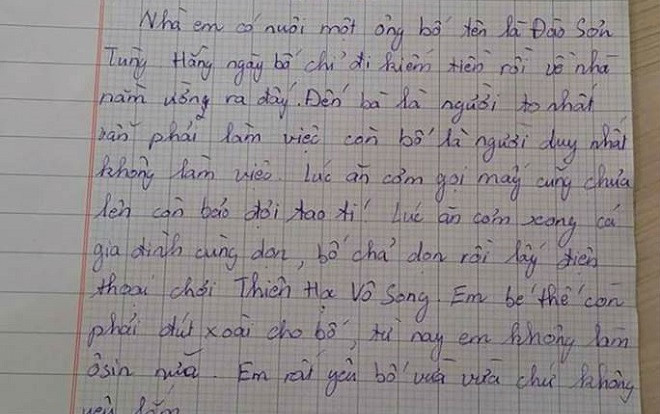 Nhà em có nuôi một ông bố tên là Đào Sơn
Tùng Hằng ngày bố chỉ đi kiếm tiền rồi về nhà
nằm ườn ra đấy. Đến bà là người to nhất
vẫn phải làm việc còn bố là người duy nhất
không làm việc. Lúc ăn cơm gọi mãi cũng chưa
lên còn bảo đợi tao tí! Lúc ăn cơm xong cả
gia đình cùng dọn, bố chả dọn rồi lấy điện
thoại chơi Thiên Hạ Vô Song. Em bé thế còn
phải đút xoài cho bố, từ nay em không làm
ôsin nữa. Em rất yêu bố vừa vừa chứ không
yêu lắm